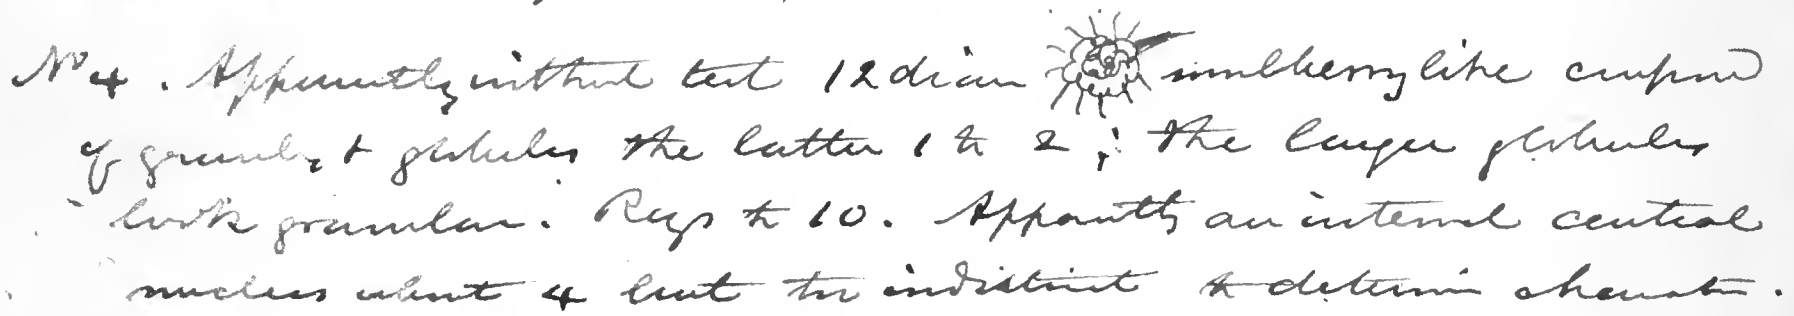 No 4. Apparently without test 12 diam mulberry like composed
of granules & globules the latter 1 to 2; the larger globules
look granular. Rays to 10. Apparently an internal central
nucleus about 4 but too indistinct to determine character.